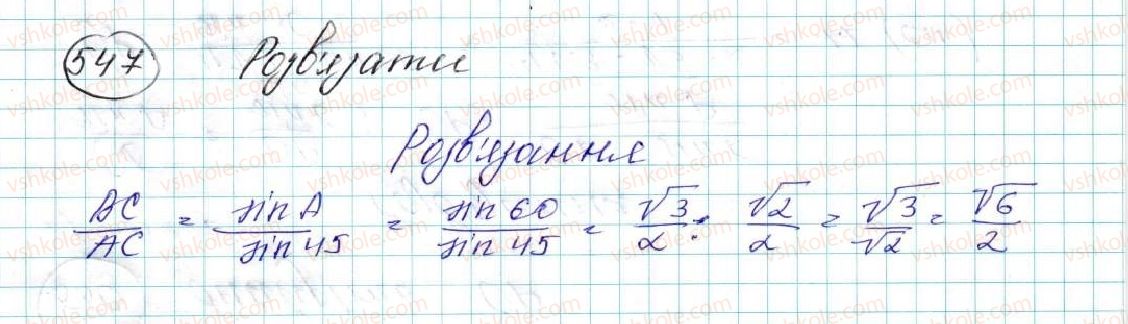 547 Розв'язати
Розв'язання
BC/AC = sin A/sin 45 = sin 60/sin 45 = √3/2 : √2/2 = √3/√2 = √6/2
vshkole.com